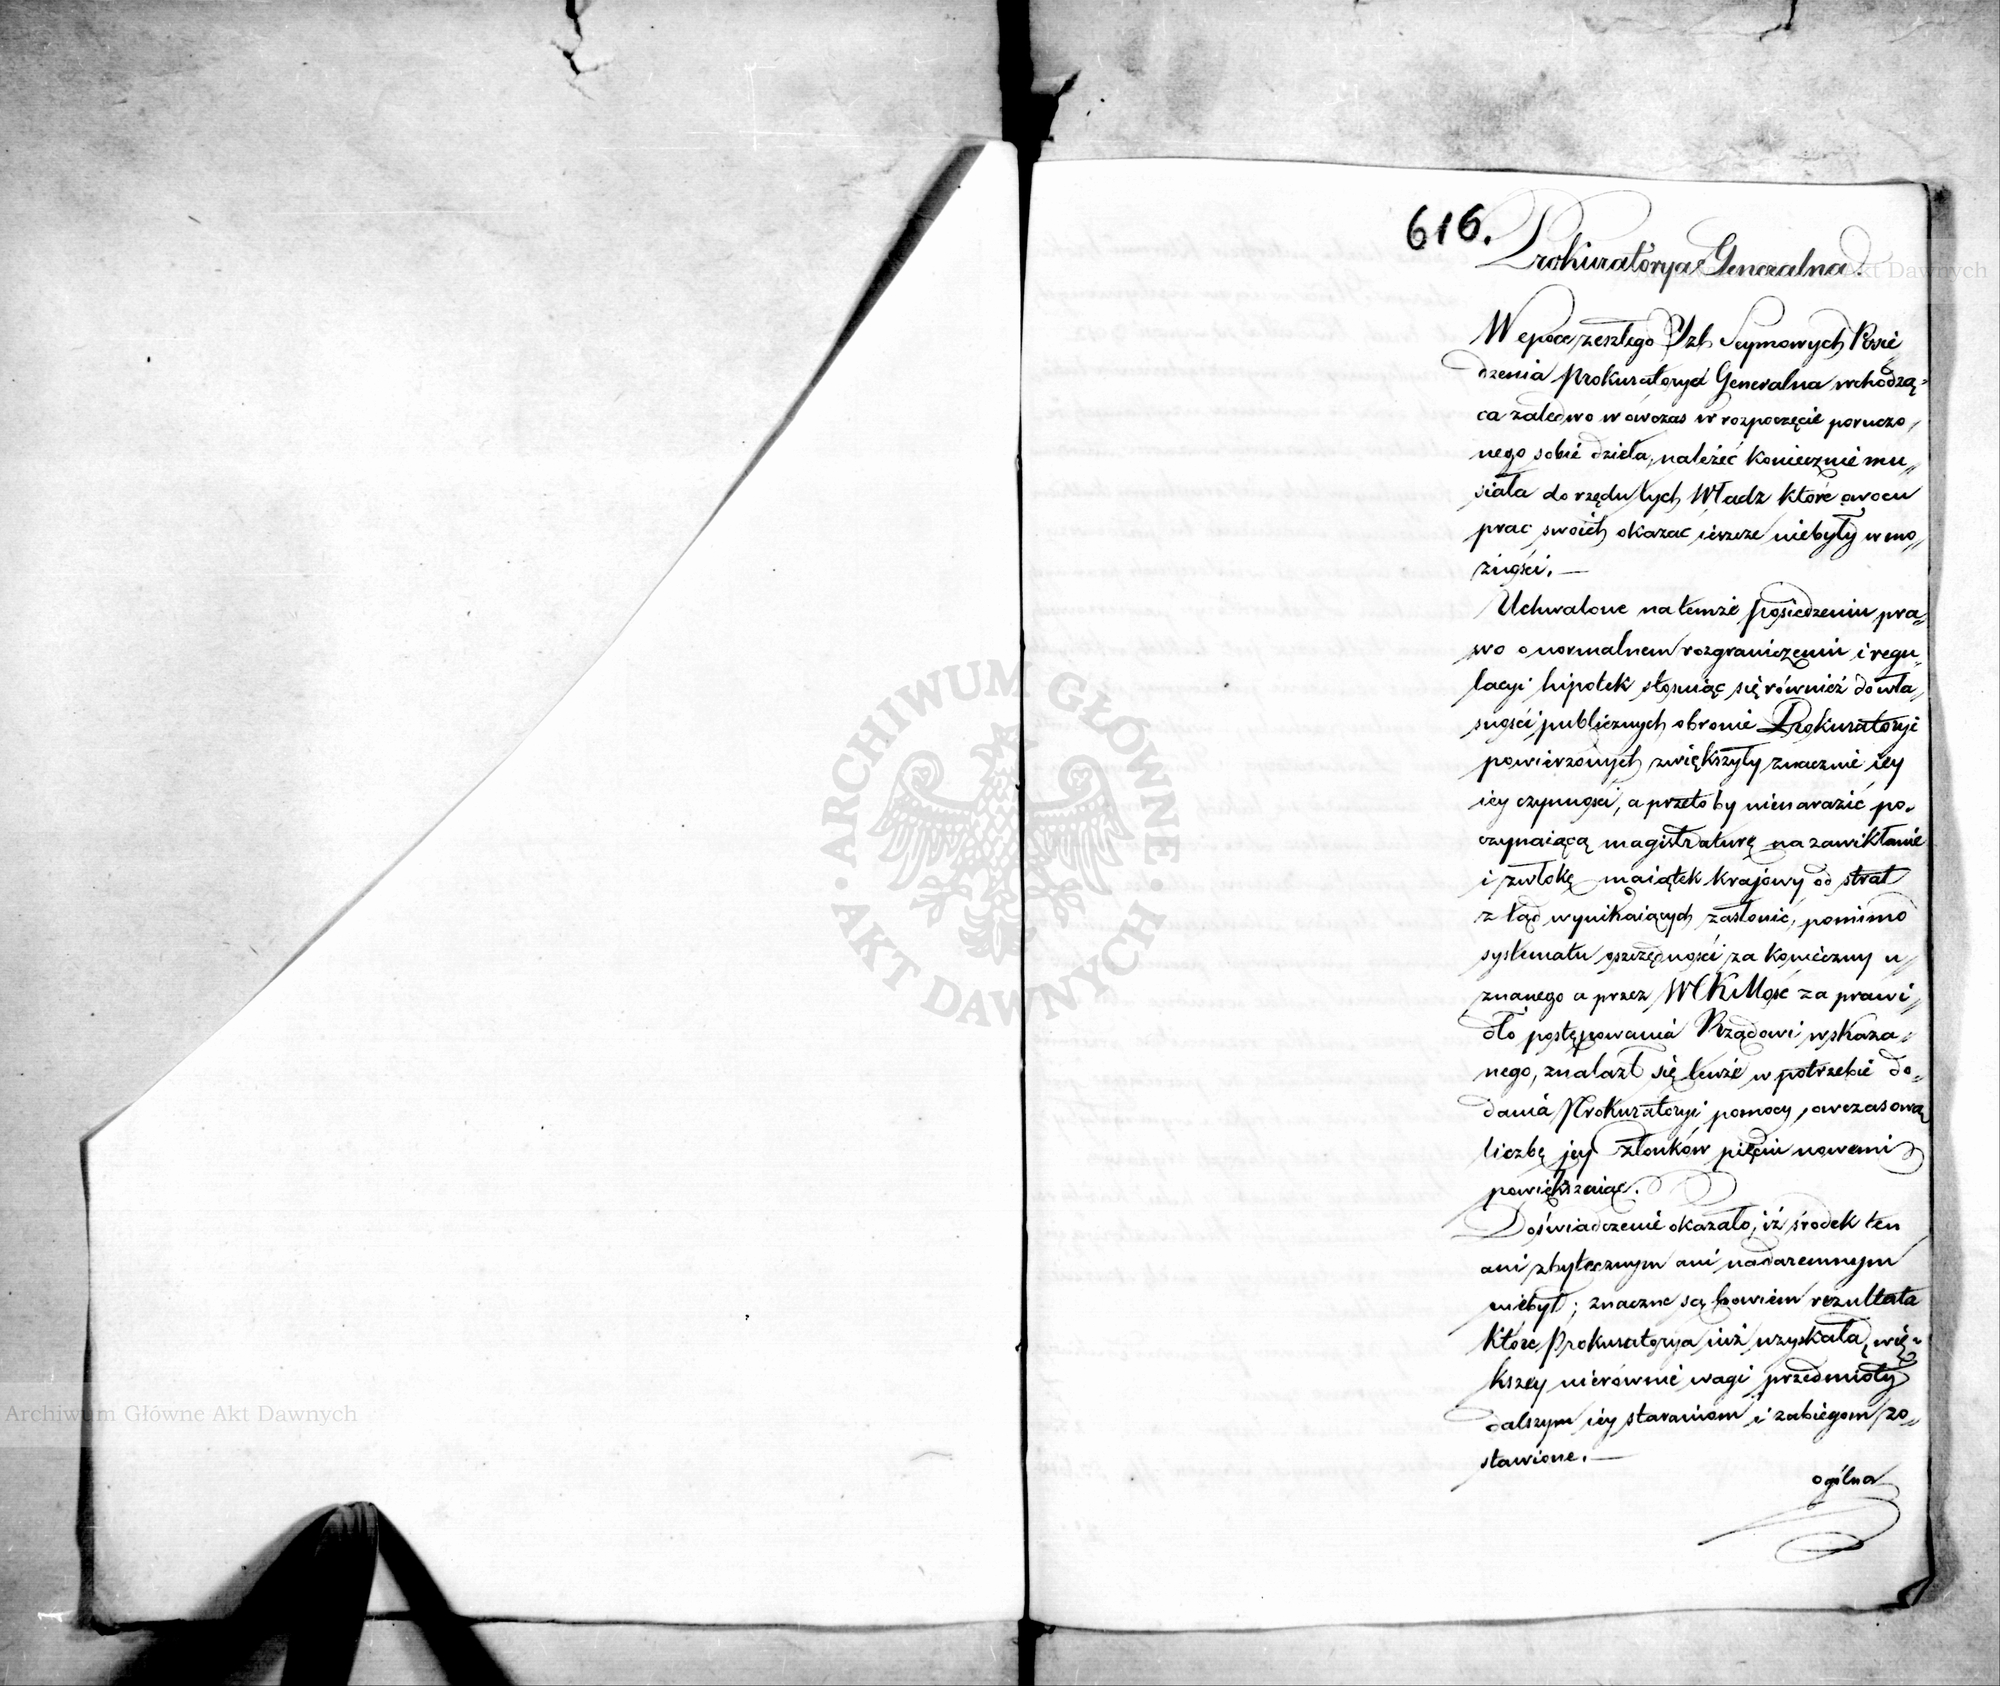 616.
Prokuratorya Generalna.
W epoce zeszłego Izb Seymowych Posie
dzenia Prokuratorya Generalna wchodzą„
ca zaledwo wówczas w rozpoczęcie poruczo„
nego sobie dzieła, należeć koniecznie mu„
siała do rzędu tych Władz które owocu
prac swoich okazać ieszcze niebyły w mo„
żności. —
Uchwalone na temże posiedzeniu pra„
wo o normalnem rozgraniczeniu i regu„
lacyi hipotek stosuiąc się również do wła„
sności publicznych obronie Prokuratoryi
powierzonych zwiększyły znacznie iey
iey czynności, a przeto by nienarazić po„
czynaiącą magistraturę na zawikłanie
i zwłokę maiątek krajowy od strat
z tąd wynikaiących zasłonić, pomimo
systematu oszczędności za konieczny u„
znanego a przez WKMość za prawi„
dło postępowania Rządowi wskaza„
nego, znalazł się tenże w potrzebie do„
dania Prokuratoryi pomocy, owczasową
liczbę jey członków pięciu nowemi
powiększaiąc.
Doświadczenie okazało, iż środek ten
ani zbytecznym ani nadaremnym
niebył; znaczne są bowiem rezultata
które Prokuratorya iuż uzyskała, wię„
kszey nierównie wagi przedmioty
dalszym iey staraniom i zabiegom zo„
stawione. —
ogólna
Archiwum Główne Akt Dawnych
ARCHIWUM GŁÓWNE
AKT DAWNYCH
Akt Dawnych